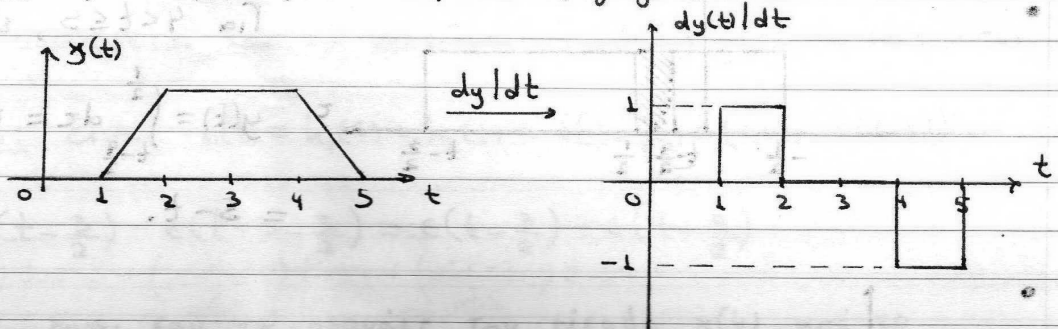 y(t)
0 1 2 3 4 5 t
dy/dt
dy(t)/dt
1
0 1 2 3 4 5 t
-1